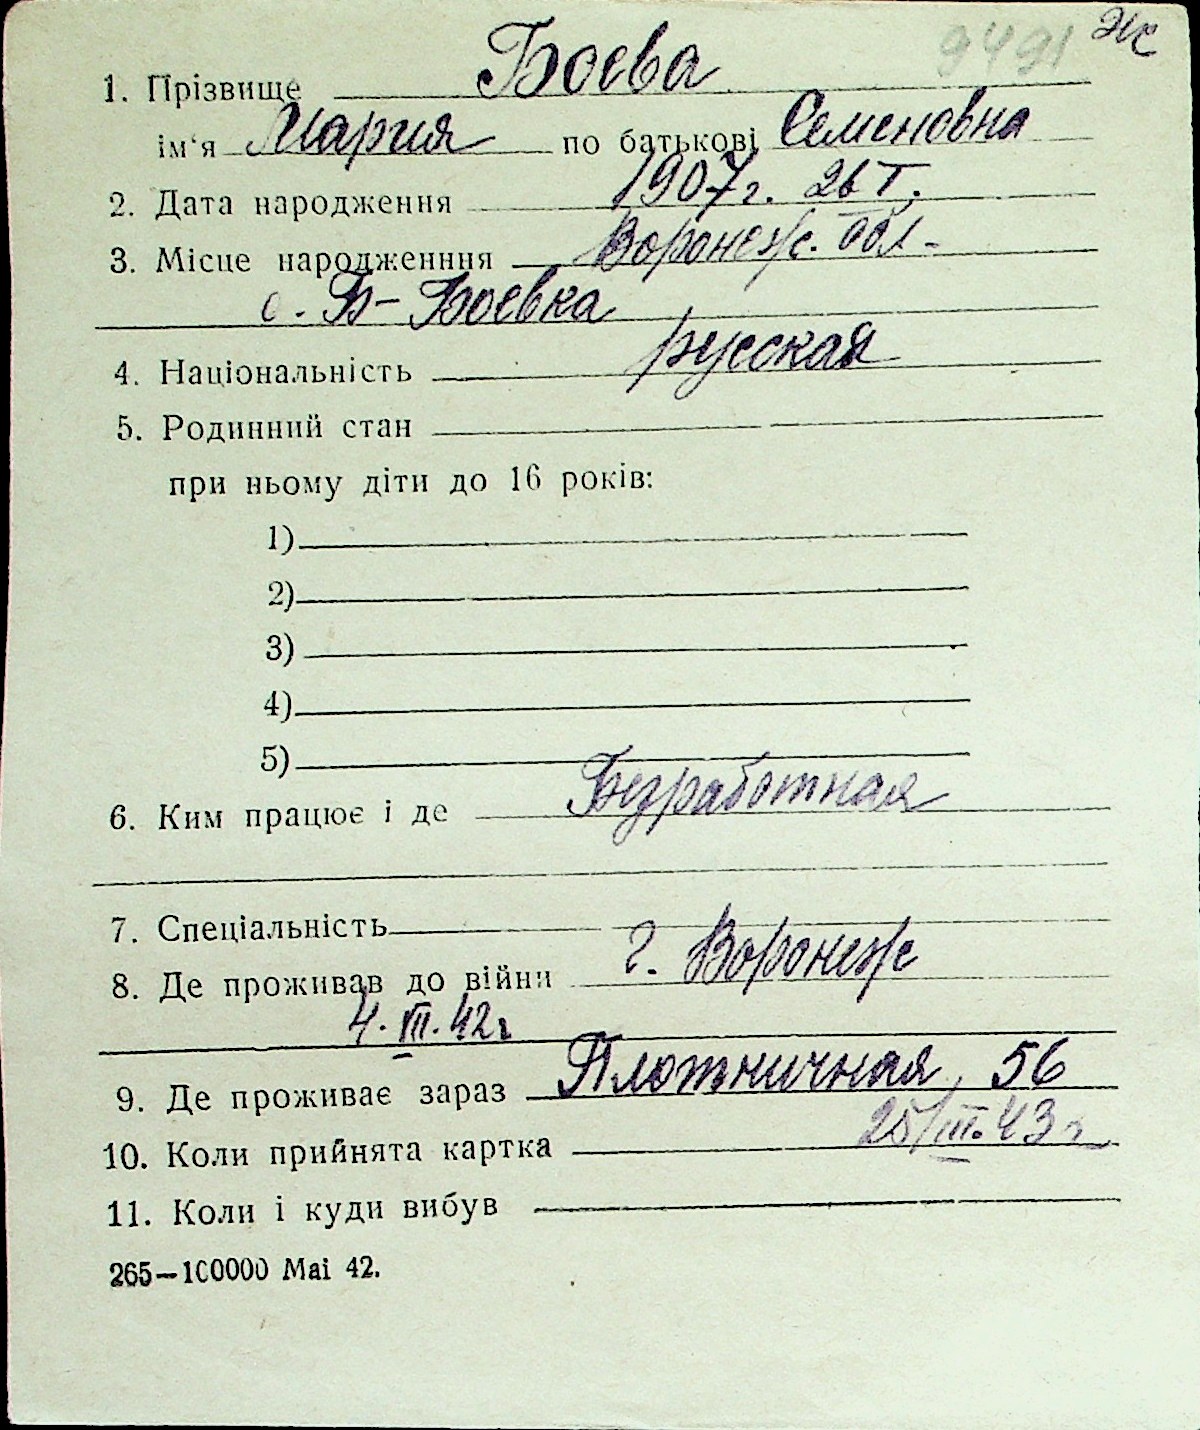 9491 Ж
1. Прізвище Боева
ім'я Мария по батькові Семеновна
2. Дата народження 1907 г. 26 I.
3. Місце народженння Воронеж. обл.
с. Б-Боевка
4. Національність русская
5. Родинний стан
при ньому діти до 16 років:
1)
2)
3)
4)
5)
6. Ким працює і де Безработная
7. Спеціальність
8. Де проживав до війни г. Воронеж
4. III. 42 г
9. Де проживає зараз Плотничная, 56
10. Коли прийнята картка 25/III. 43 г
11. Коли і куди вибув
265—100000 Mai 42.